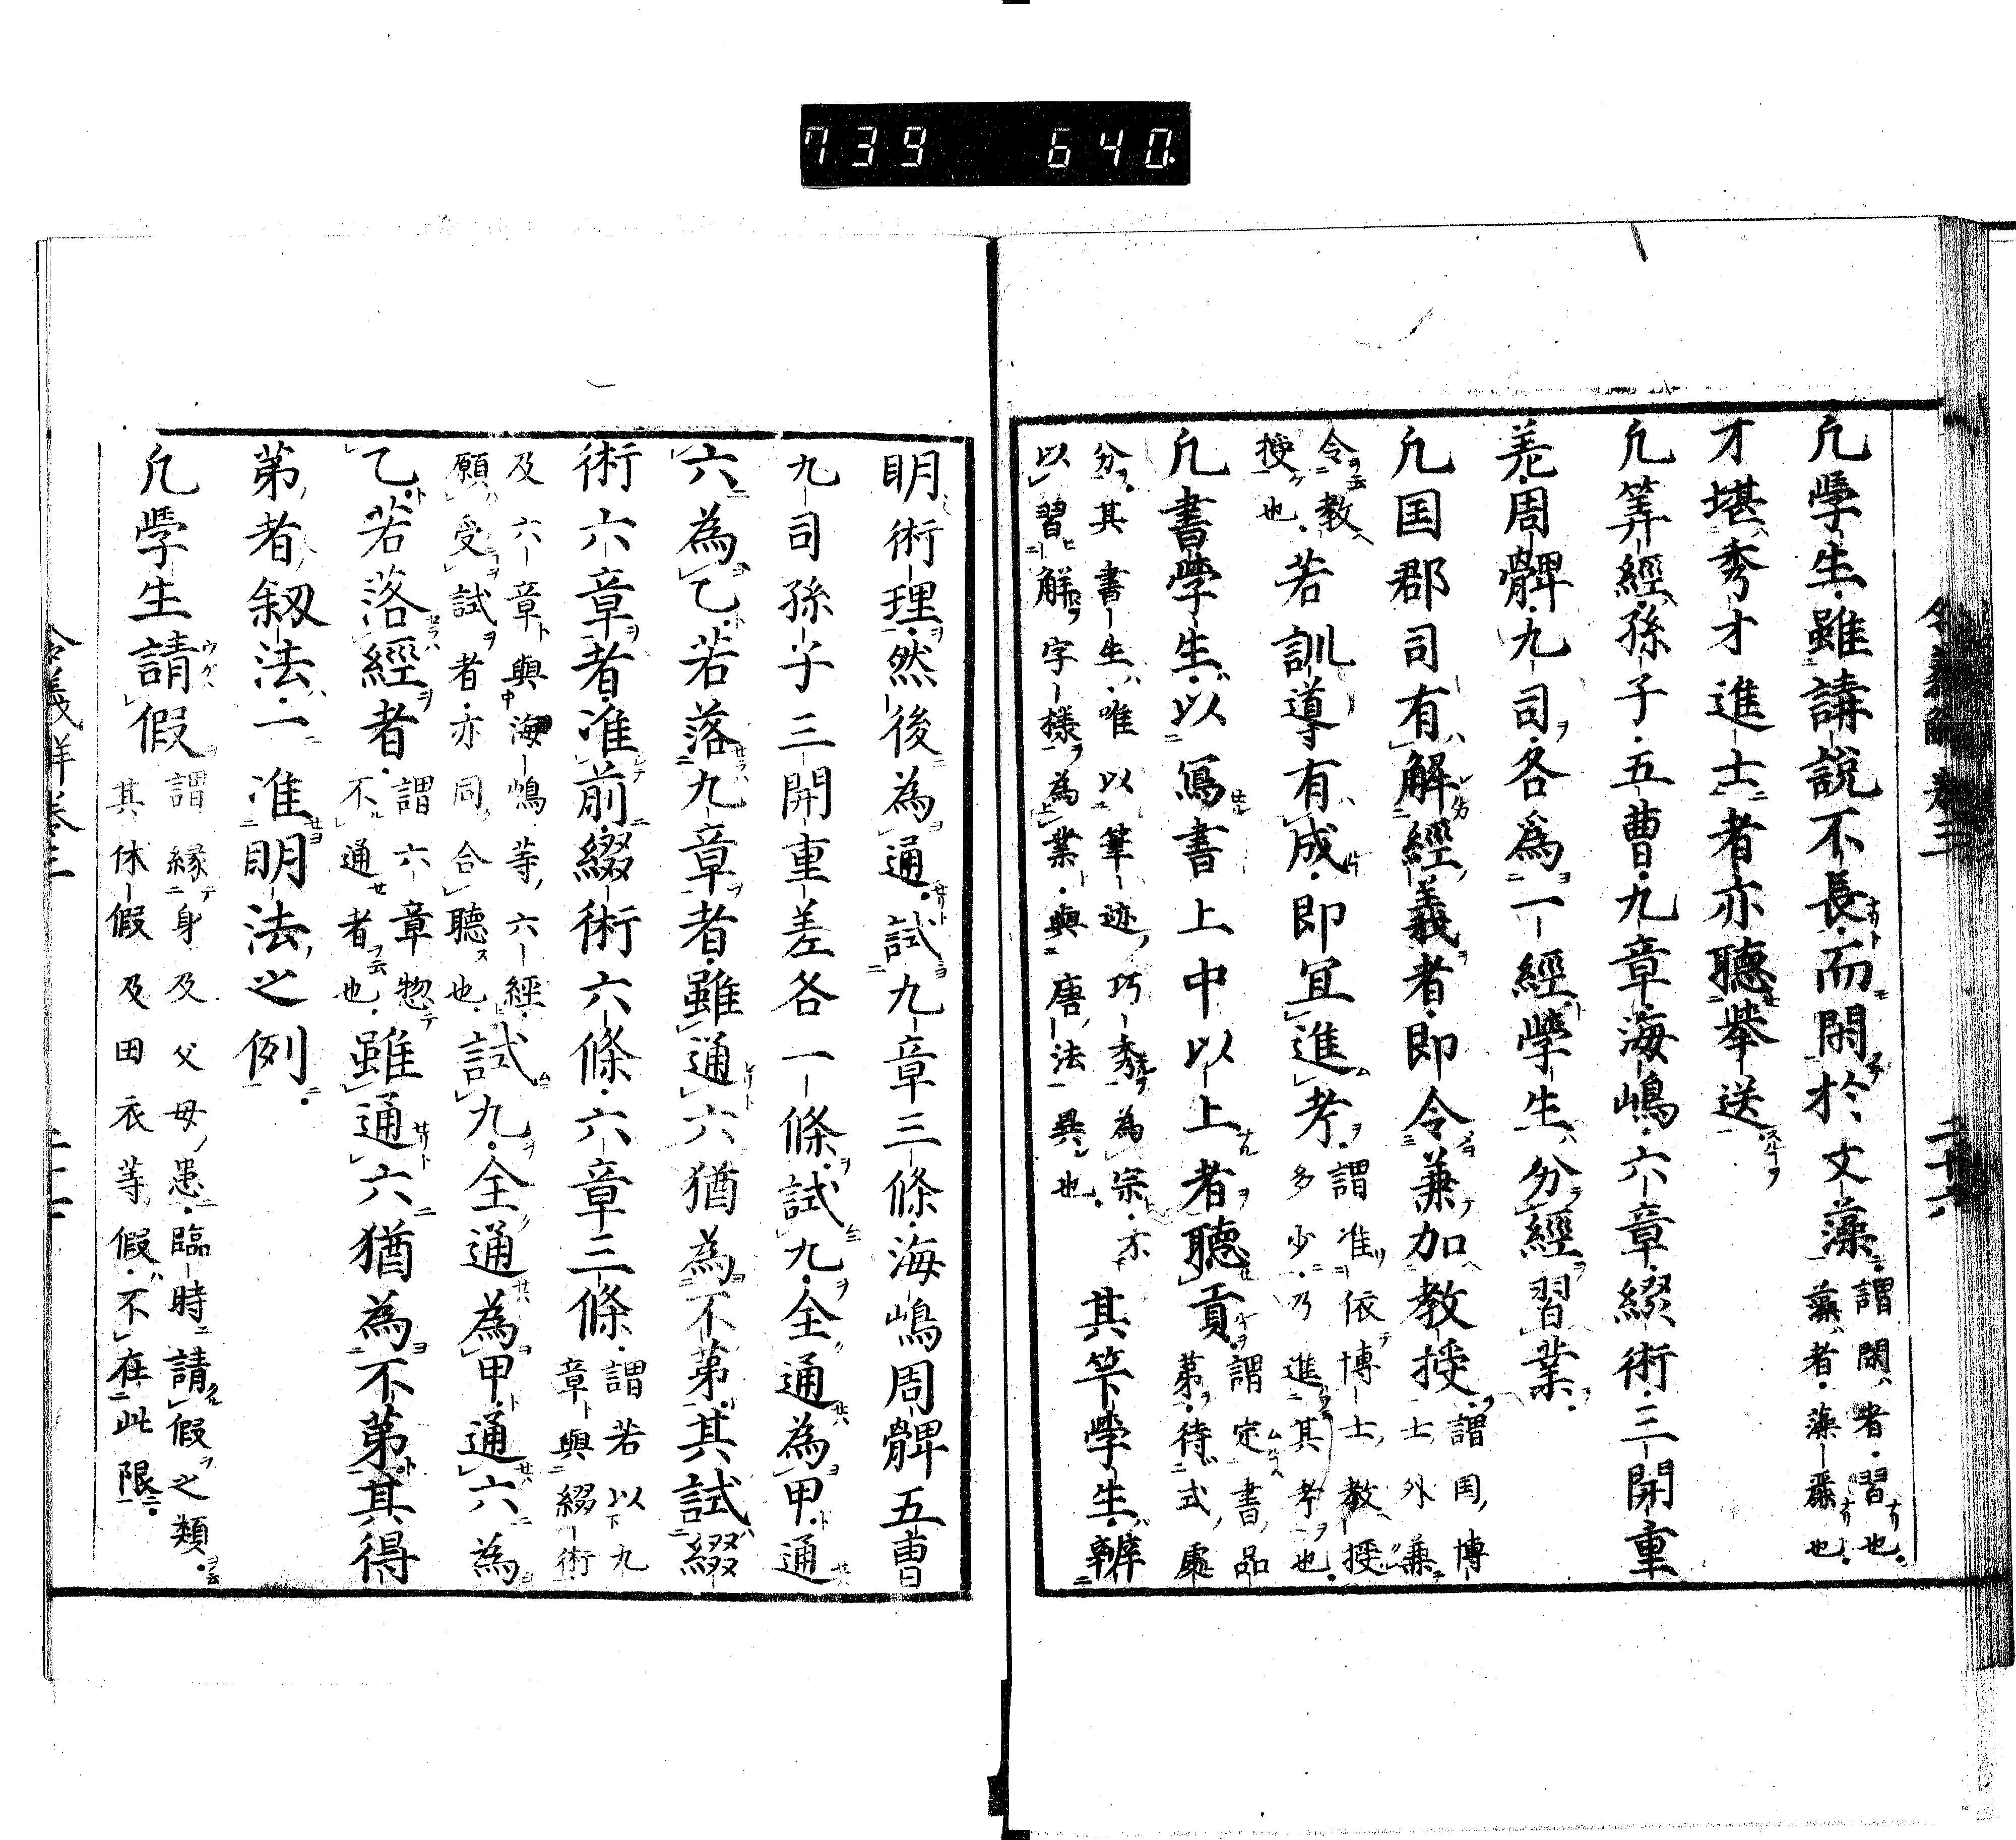 739 640
凢學生雖講說不長而閑於文藻謂閑者習也藻者藻麗也
才堪秀才進士者亦聽舉送
凢筭經孫子五曹九章海嶋六章綴術三開重
差周髀九司各爲一經學生分經習業
凢国郡司有解經義者即令兼加教授謂国博士外兼
令教授也若訓導有成即宜進考謂准依博士教授多少乃進其考也
凢書學生以寫書上中以上者聽貢謂定書品第待式處
分其書生唯以筆迹巧秀為宗不以習解字様為業與唐法異也其竿學生辨
明術理然後為通試九章三條海嶋周髀五曹
九司孫子三開重差各一條試九全通為甲通
六為乙若落九章者雖通六猶為不第其試綴
術六章者准前綴術六條六章三條謂若以九章與綴術
及六章與海嶋等六經願受試者亦同合聽也試九全通為甲通六為
乙若落經者謂六章惣不通者也雖通六猶為不第其得
第者叙法一准明法之例
凢學生請假謂緣身及父母患臨時請假之類其休假及田衣等假不在此限